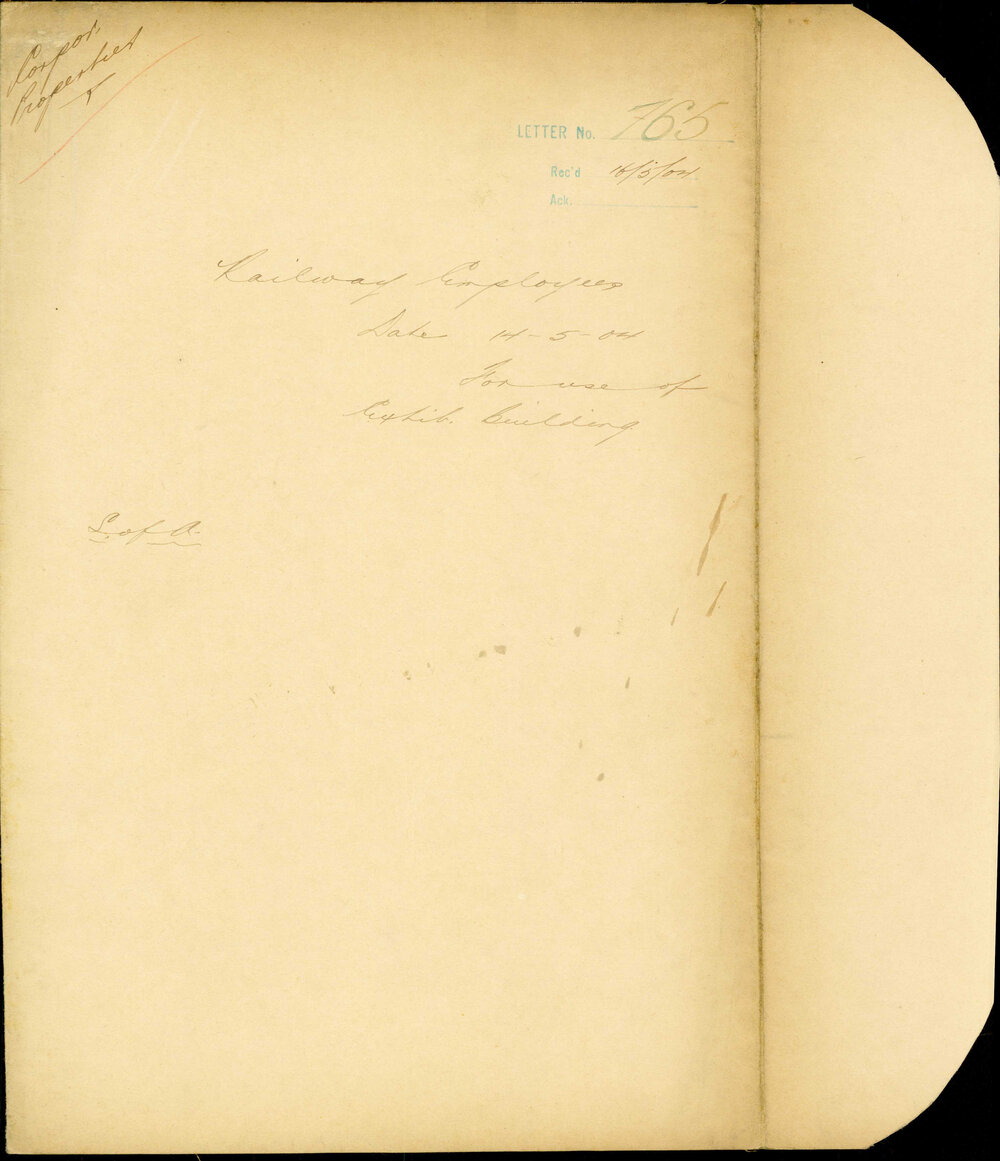 Corpor.
Properties
LETTER No. 765
Rec'd 16/5/04.
Ack.
Railway Employees
Date 14-5-04
For use of
Exhib. Building
S. of A.